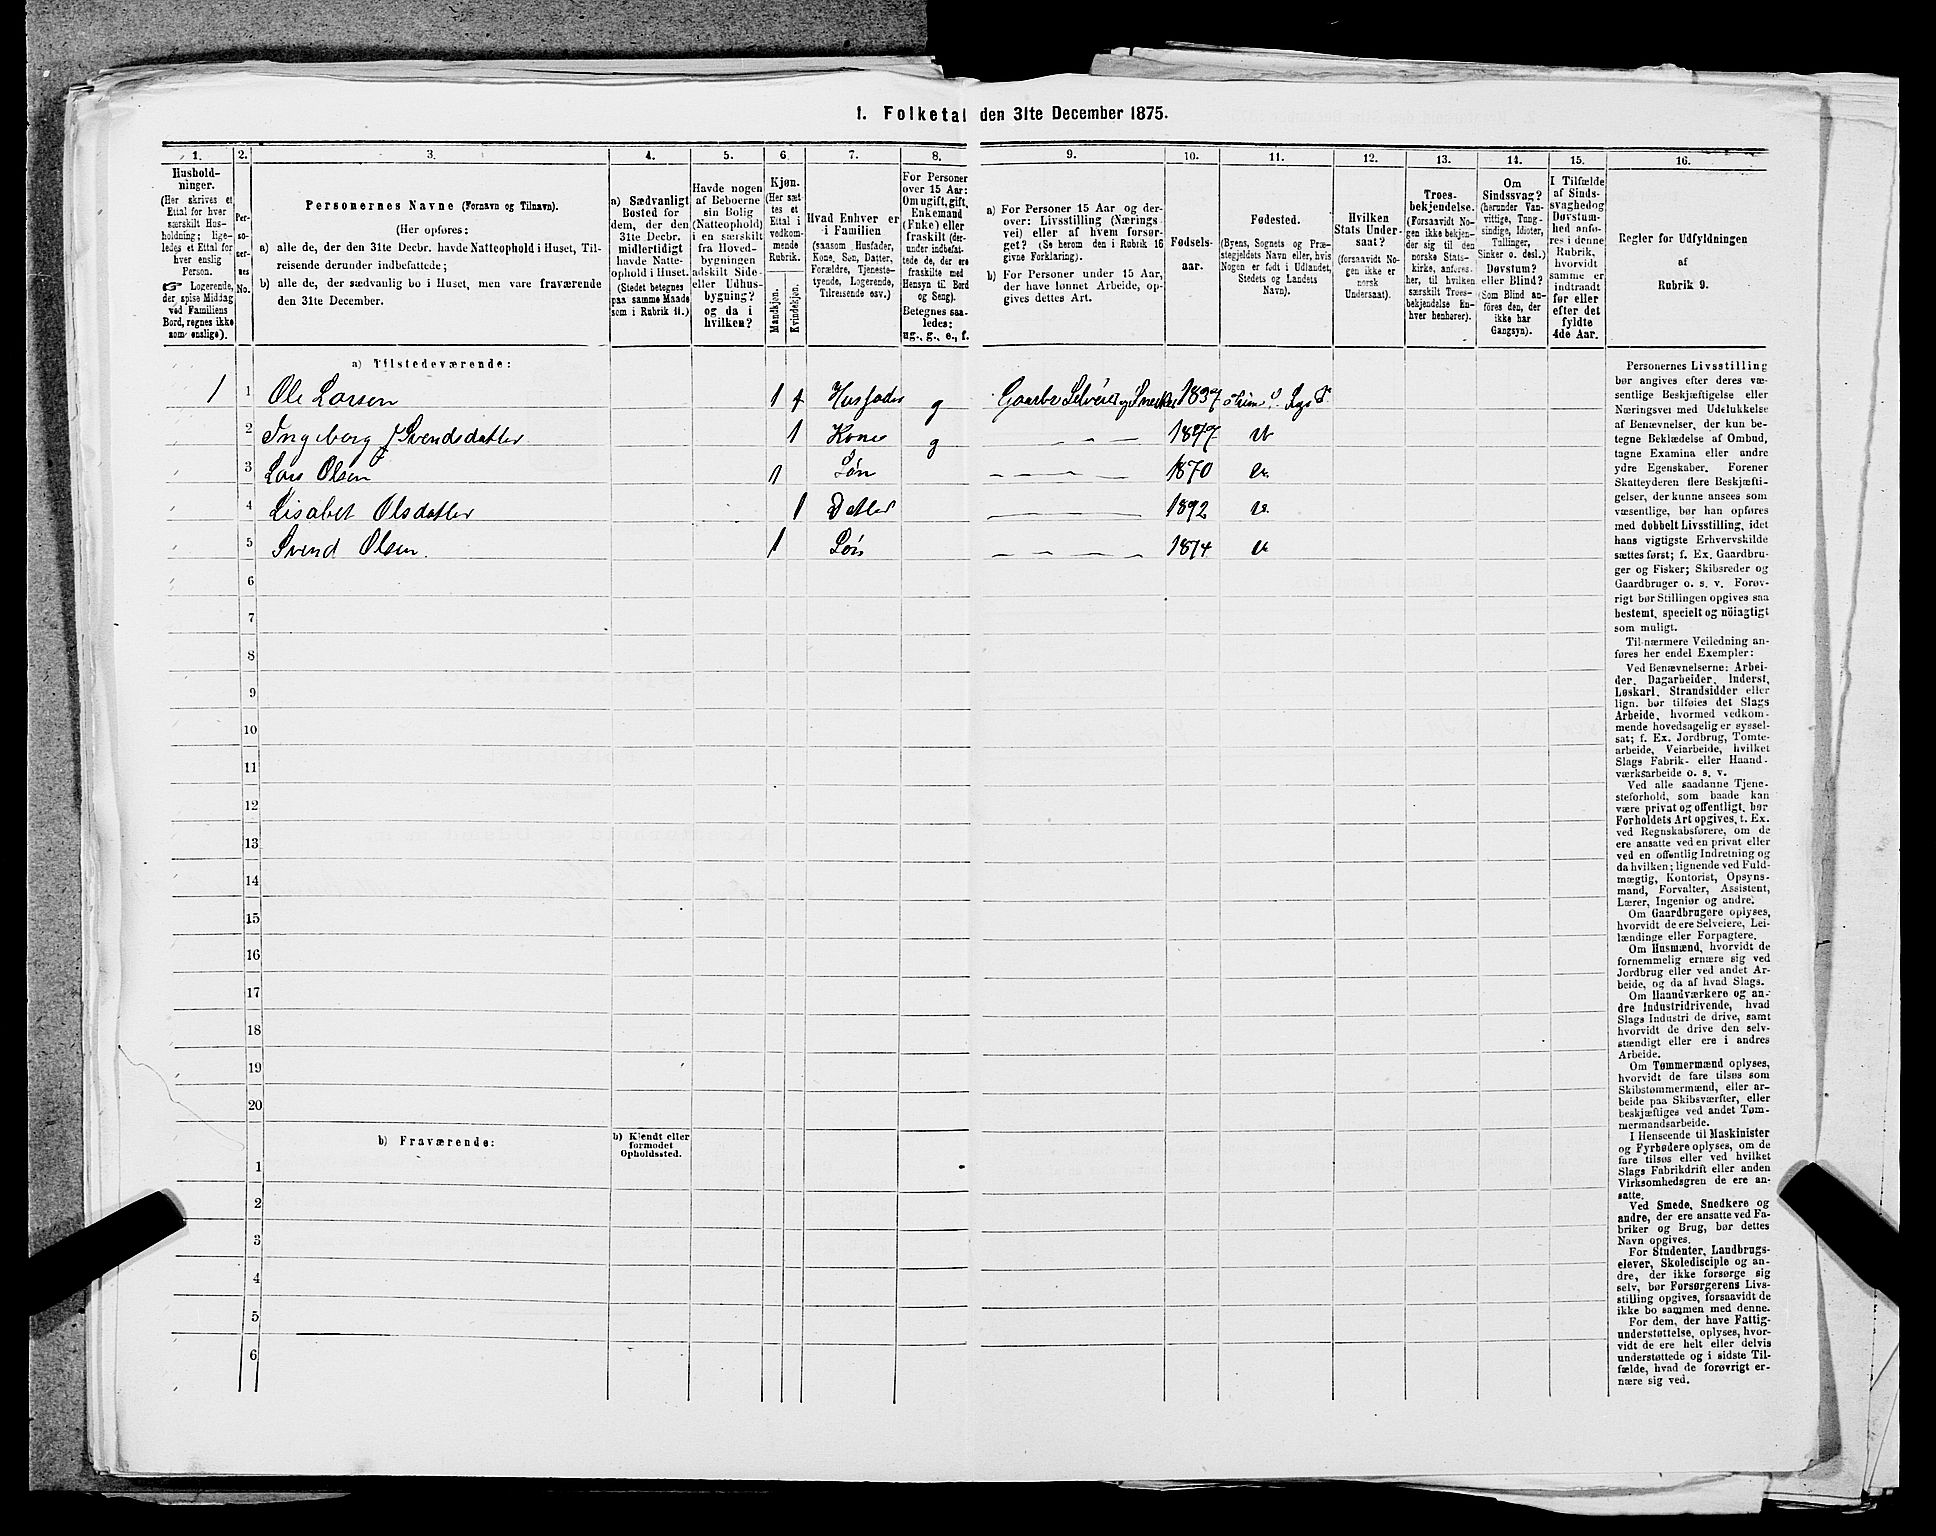 1. Folketal den 31te December 1875.
1. 2. 3. 4. 5. 6. 7. 8. 9. 10. 11. 12. 13. 14. 15. 16.
Hushold-
ninger.
(Her skrives et
Ettal for hver
særskilt Hus-
holdning; lige-
ledes et Ettal for
hver enslig
Person.
☞ Logerende,
der spise Middag
ved Familiens
Bord, regnes ikke
som enslige).
Per-
so-
ner-
nes
No.
Personernes Navne (Fornavn og Tilnavn).
(Her opføres:
a) alle de, der den 31te Decbr. havde Natteophold i Huset, Til-
reisende derunder indbefattede;
b) alle de, der sædvanlig bo i Huset, men vare fraværende
den 31te December.
a) Sædvanligt
Bosted for
dem, der den
31te Decbr.
midlertidigt
havde Natte-
ophold i Huset.
(Stedet betegnes
paa samme Maade
som i Rubrik 11.)
Havde nogen
af Beboerne
sin Bolig
(Natteophold)
i en særskilt
fra Hoved-
bygningen
adskilt Side-
eller Udhus-
bygning?
og da i
hvilken?
Kjøn.
(Her sæt-
tes et
Ettal i
vedkom-
mende
Rubrik.
Mandkjøn.
Kvindekjøn.
Hvad Enhver er
i Familien
(saasom Husfader,
Kone, Søn, Datter,
Forældre, Tjeneste-
tyende, Logerende,
Tilreisende osv.)
For Personer
over 15 Aar:
Om ugift, gift,
Enkemand
(Enke) eller
fraskilt (der-
under indbefat-
tede de, der ere
fraskilte med
Hensyn til Bord
og Seng).
Betegnes saa-
ledes:
ug., g., e., f.
a) For Personer 15 Aar og der-
over: Livsstilling (Nærings-
vei) eller af hvem forsør-
get? (Se herom den i Rubrik 16
givne Forklaring).
b) For Personer under 15 Aar,
der have lønnet Arbeide, op-
gives dettes Art.
Fødsels-
aar.
Fødested.
(Byens, Sognets og Præ-
stegjeldets Navn eller, hvis
Nogen er født i Udlandet,
Stedets og Landets
Navn).
Hvilken
Stats Under-
saat?
(forsaavidt No-
gen ikke er
norsk
Undersaat).
Troes-
bekjendelse.
(Forsaavidt No-
gen ikke bekjen-
der sig til den
norske Stats-
kirke, anføres
her, til hvilken
særskilt Troes-
bekjendelse En-
hver henhører).
Om
Sindssvag?
(herunder Van-
vittige, Tung-
sindige, Idioter,
Tullinger,
Sinker o. desl.)
Døvstum?
eller Blind?
(Som Blind an-
føres den, der
ikke har
Gangsyn).
I Tilfælde
af Sinds-
svaghed og
Døvstum-
hed anfø-
res i denne
Rubrik,
hvorvidt
samme er
indtraadt
før eller
efter det
fyldte
4de Aar.
Regler for Udfyldningen
af
Rubrik 9.
a) Tilstedeværende:
1 1 Ole Larsen 1 Husfader g Gaardbr Selveier og Snedker 1837
2 Ingeborg Svendsdatter 1 Kone g
3 Lars Olsen 1 Søn 1870
4 Lisabet Olsdatter 1 Datter
5 Svend Olsen. 1 Søn 1874
6
7
8
9
10
11
12
13
14
15
16
17
18
19
20
b) Fraværende:
b) Kjendt eller
formodet
Opholdssted.
1
2
3
4
5
6
Personernes Livsstilling
bør angives efter deres væ-
sentlige Beskjæftigelse eller
Næringsvei med Udelukkelse
af Benævnelser, der kun be-
tegne Beklædelse af Ombud,
tagne Examina eller andre
ydre Egenskaber. Forener
Skatteyderen flere Beskjæfti-
gelser, der kunne ansees som
væsentlige, bør han opføres
med dobbelt Livsstilling, idet
hans vigtigste Erhvervskilde
sættes først; f. Ex. Gaardbru-
ger og Fisker; Skibsreder og
Gaardbruger o. s. v. Forøv-
rigt bør Stillingen opgives saa
bestemt, specielt og nöiagtigt
som muligt.
Til nærmere Veiledning an-
føres her endel Exempler:
Ved Benævnelserne: Arbei-
der, Dagarbeider, Inderst,
Løskarl, Strandsidder eller
lign. bør tilføies det Slags
Arbeide, hvormed vedkom-
mende hovedsagelig er syssel-
sat; f. Ex. Jordbrug, Tomte-
arbeide, Veiarbeide, hvilket
Slags Fabrik- eller Haand-
værksarbeide o. s. v.
Ved alle saadanne Tjene-
steforhold, som baade kan
være privat og offentligt, bør
Forholdets Art opgives, t. Ex.
ved Regnskabsførere, om de
ere ansatte ved en privat eller
ved en offentlig Indretning og
da hvilken; lignende ved Fuld-
mægtig, Kontorist, Opsyns-
mand, Forvalter, Assistent,
Lærer, Ingeniør og andre.
Om Gaardbrugere oplyses,
hvorvidt de ere Selveiere, Lei-
lændinge eller Forpagtere.
Om Husmænd, hvorvidt de
fornemmelig ernære sig ved
Jordbrug eller ved andet Ar-
beide, og da af hvad Slags.
Om Haandværkere og an-
dre Industridrivende, hvad
Slags Industri de drive, samt
hvorvidt de drive den selv-
stændigt eller ere i andres
Arbeide.
Om Tømmermænd oplyses,
hvorvidt de fare tilsøs som
Skibstømmermænd, eller ar-
beide paa Skibsværfter, eller
beskjæftiges ved andet Tøm-
mermandsarbeide.
I Henseende til Maskinister
og Fyrbødere oplyses, om de
fare tilsøs eller ved hvilket
Slags Fabrikdrift eller anden
Virksomhedsgren de ere an-
satte.
Ved Smede, Snedkere og
andre, der ere ansatte ved Fa-
briker og Brug, bør dettes
Navn opgives.
For Studenter, Landbrugs-
elever, Skoledisciple og an-
dre, der ikke forsørge sig
selv, bør Forsørgerens Livs-
stilling opgives, forsaavidt de
ikke bo sammen med denne.
For dem, der have Fattig-
understøttelse, oplyses, hvor-
vidt de ere helt eller delvis
understøttede og i sidste Til-
fælde, hvad de forøvrigt er-
nære sig ved.